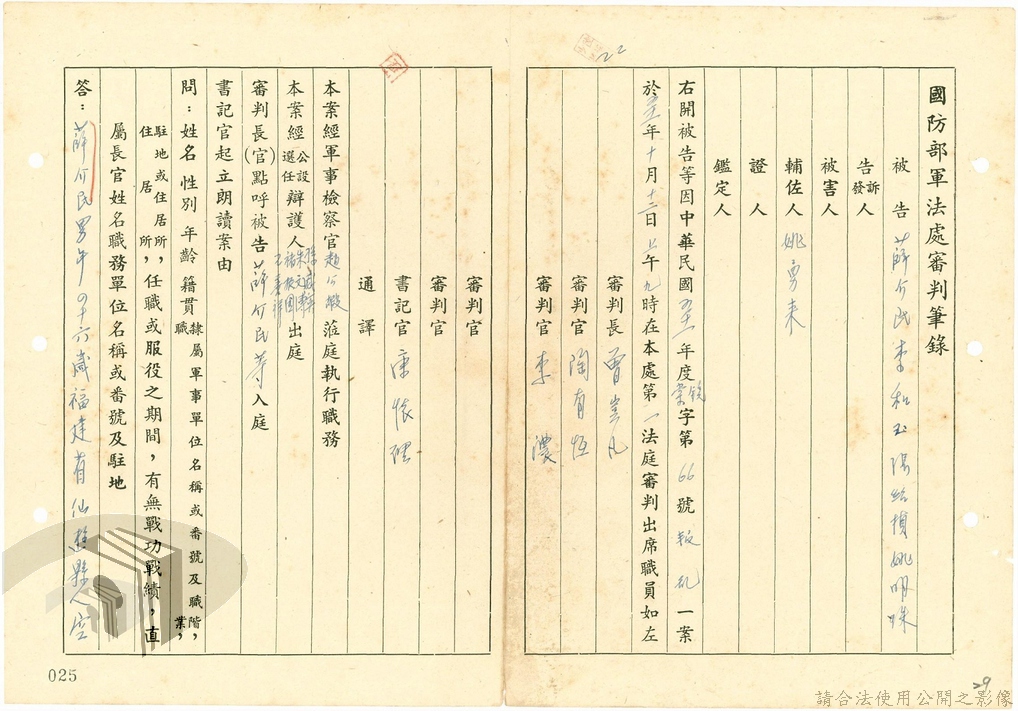 國防部軍法處審判筆錄
被告 薛介民 李和玉 湯
告訴發人
被害人
輔佐人 姚勇來
證人
鑑定人
右開被告等因中華民國五一年度 字第 66 號 叛亂 一案
於五一年十月十二日上午九時在本處第一法庭審判出席職員如左
審判長 曹
審判官 陶有恆
審判官 李濃
審判官
審判官
書記官 康懷
通譯
本案經軍事檢察官趙公嘏蒞庭執行職務
本案經公設選任辯護人 出庭
審判長(官)點呼被告薛介民等入庭
書記官起立朗讀案由
問:姓名性別年齡籍貫隸屬軍事單位名稱或番號及職階,職業,
駐地或住居所,住居所,任職或服役之期間,有無戰功戰績,直
屬長官姓名職務單位名稱或番號及駐地
答:薛介民男年四十六歲福建省仙遊縣人空
025
22
29
請合法使用公開之影像